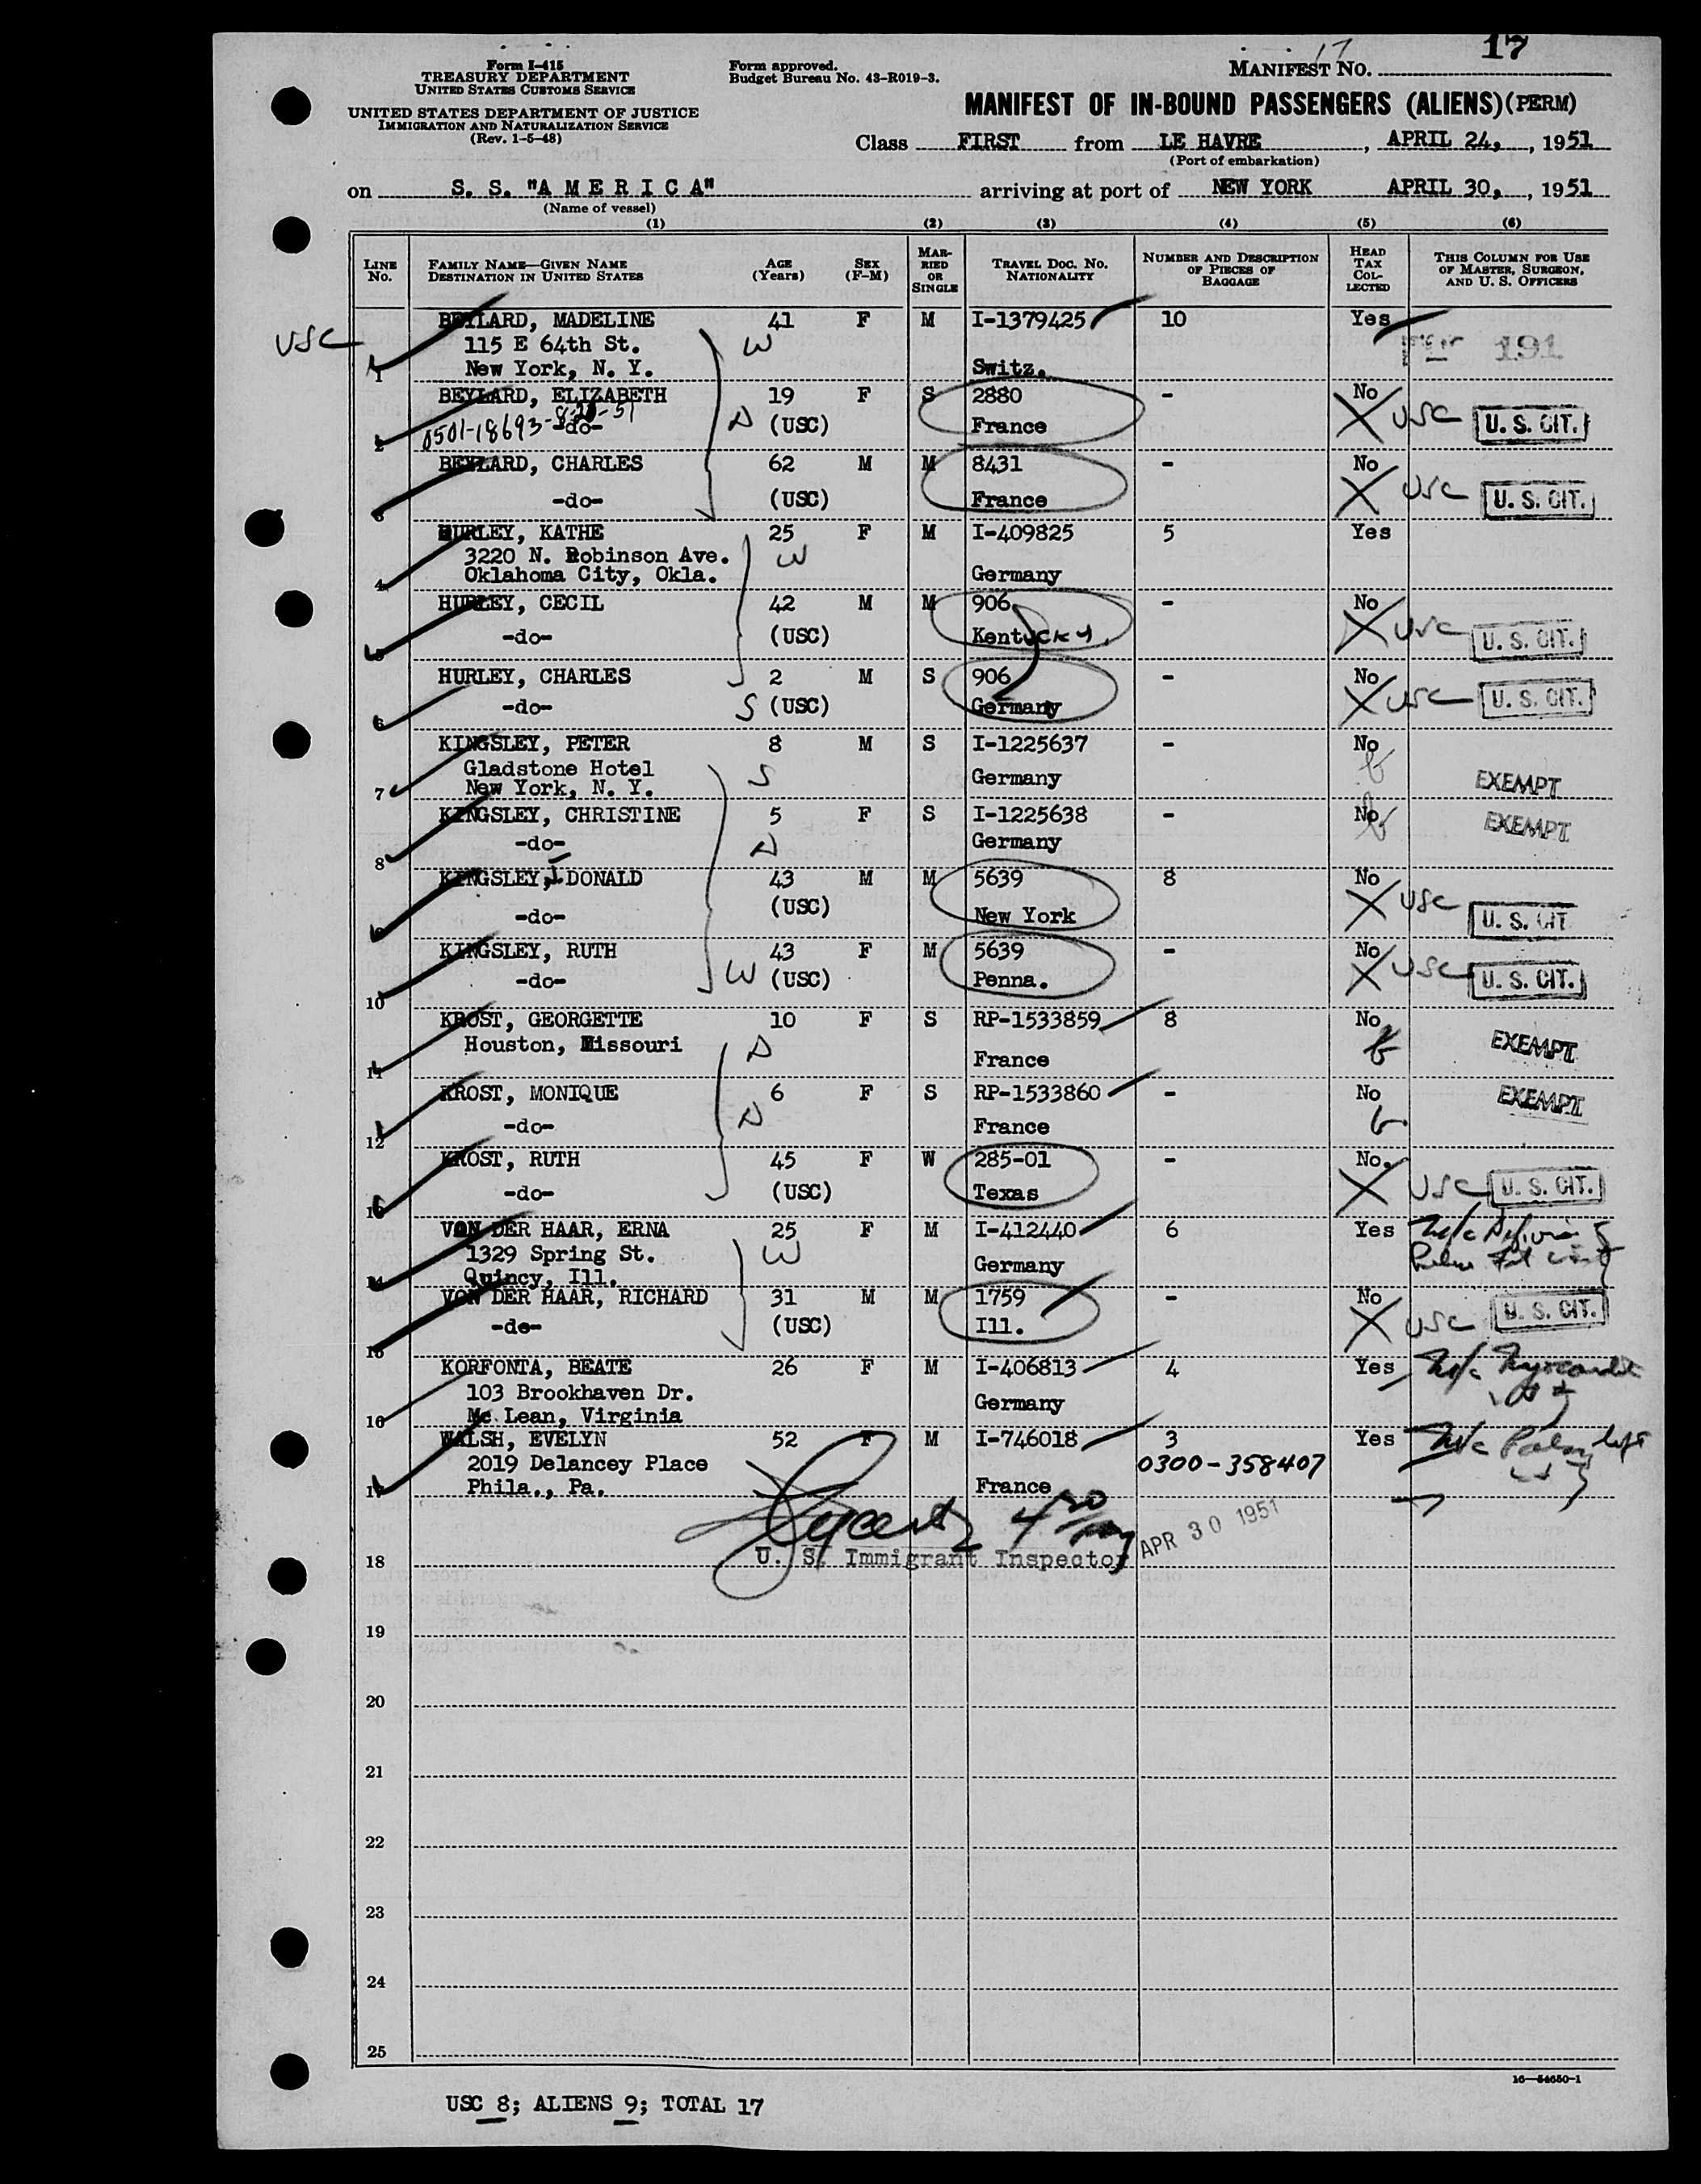 17
17
Form I-415
TREASURY DEPARTMENT
UNITED STATES CUSTOMS SERVICE
UNITED STATES DEPARTMENT OF JUSTICE
IMMIGRATION AND NATURALIZATION SERVICE
(Rev. 1-5-48)
Form approved.
Budget Bureau No. 43-R019-3.
MANIFEST NO.
MANIFEST OF IN-BOUND PASSENGERS (ALIENS) (PERM)
Class FIRST from LE HAVRE, APRIL 24, , 1951
(Port of embarkation)
on S. S. "A M E R I C A" arriving at port of NEW YORK APRIL 30, , 1951
(Name of vessel)
(1) (2) (3) (4) (5) (6)
LINE No. FAMILY NAME—GIVEN NAME DESTINATION IN UNITED STATES AGE (Years) SEX (F-M) MARRIED OR SINGLE TRAVEL DOC. NO. NATIONALITY NUMBER AND DESCRIPTION OF PIECES OF BAGGAGE HEAD TAX COLLECTED THIS COLUMN FOR USE OF MASTER, SURGEON, AND U. S. OFFICERS
BEYLARD, MADELINE 41 F M I-1379425 10 Yes
USC 115 E 64th St. W 191
1 New York, N. Y. Switz.
BEYLARD, ELIZABETH 19 F S 2880 - No
2 0501-18693-8-20-51 -do- D (USC) France USC U. S. CIT.
BEYLARD, CHARLES 62 M M 8431 - No
3 -do- (USC) France USC U. S. CIT.
HURLEY, KATHE 25 F M I-409825 5 Yes
3220 N. Robinson Ave. W
4 Oklahoma City, Okla. Germany
HURLEY, CECIL 42 M M 906 - No
5 -do- (USC) Kentucky. USC U. S. CIT.
HURLEY, CHARLES 2 M S 906 - No
6 -do- S (USC) Germany USC U. S. CIT.
KINGSLEY, PETER 8 M S I-1225637 - No
Gladstone Hotel S Germany EXEMPT
7 New York, N. Y.
KINGSLEY, CHRISTINE 5 F S I-1225638 - No EXEMPT
8 -do- D Germany
KINGSLEY, J DONALD 43 M M 5639 8 No
9 -do- (USC) New York USC U. S. CIT
KINGSLEY, RUTH 43 F M 5639 - No
10 -do- W (USC) Penna. USC U. S. CIT.
KROST, GEORGETTE 10 F S RP-1533859 8 No
11 Houston, Missouri D France EXEMPT
KROST, MONIQUE 6 F S RP-1533860 - No EXEMPT
12 -do- D France
KROST, RUTH 45 F W 285-01 - No.
13 -do- (USC) Texas USC U. S. CIT.
VON DER HAAR, ERNA 25 F M I-412440 6 Yes
1329 Spring St. W Germany
14 Quincy, Ill.
VON DER HAAR, RICHARD 31 M M 1759 - No
15 -do- (USC) Ill. USC U. S. CIT.
KORFONTA, BEATE 26 F M I-406813 4 Yes
103 Brookhaven Dr. Germany
16 Mc Lean, Virginia
WALSH, EVELYN 52 F M I-746018 3 Yes
2019 Delancey Place 0300-358407
17 Phila., Pa. France
4/30
APR 30 1951
U. S. Immigrant Inspector
18
19
20
21
22
23
24
25
16—54650-1
USC 8; ALIENS 9; TOTAL 17